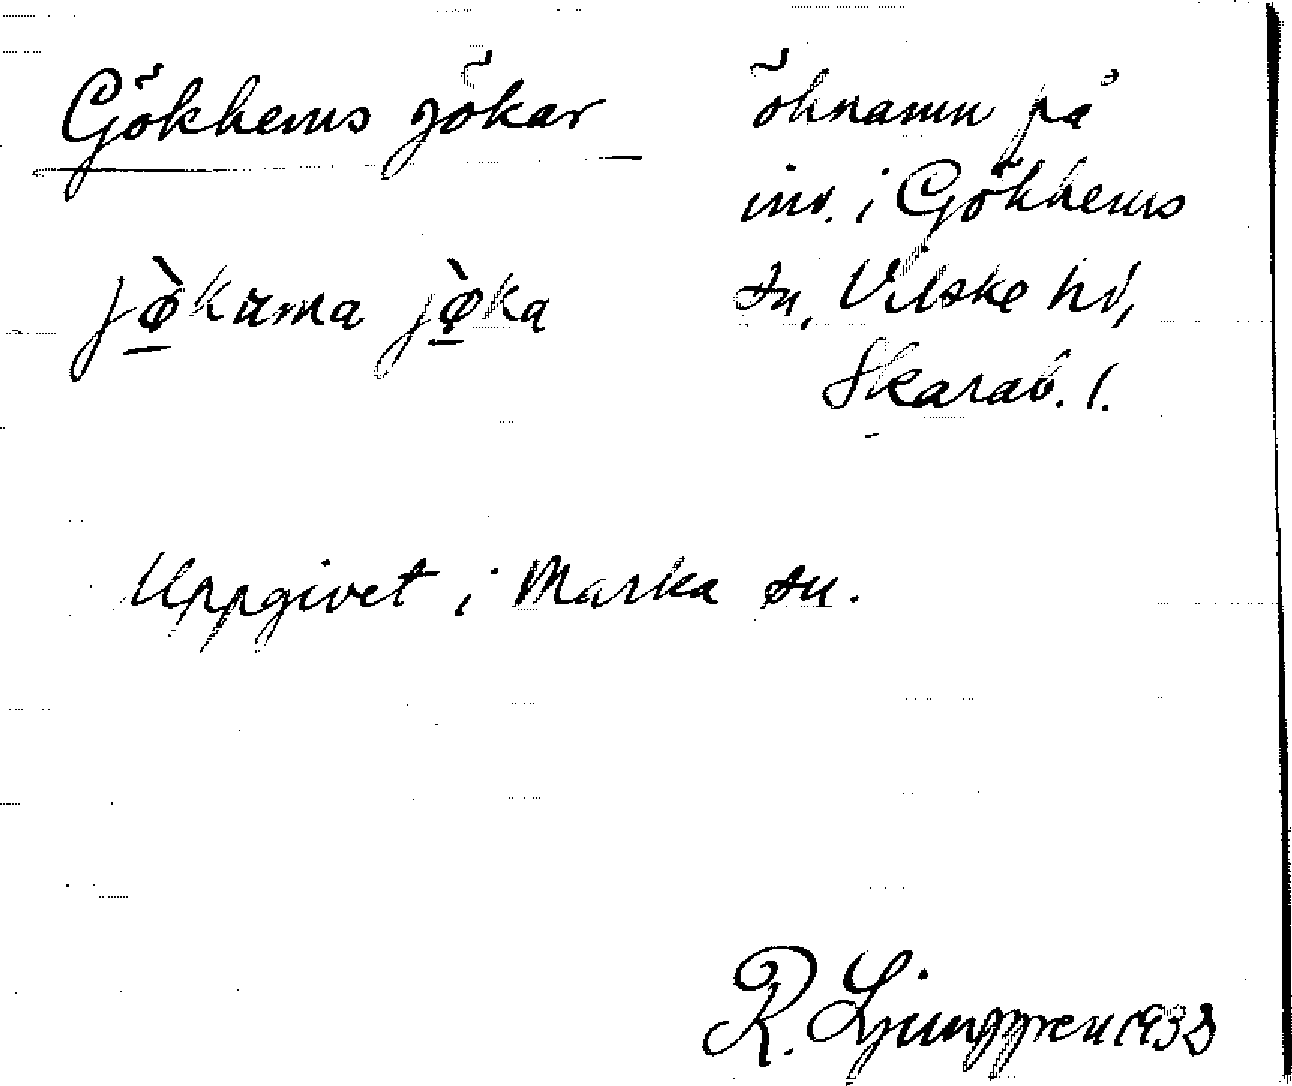 Gökhems gökar
öknamn på
inv. i Gökhems
sn, Vilske hd,
Skarab. l.
jø̀kæma jø̀ka
Uppgivet i Marka sn.
R. Ljunggren 1933